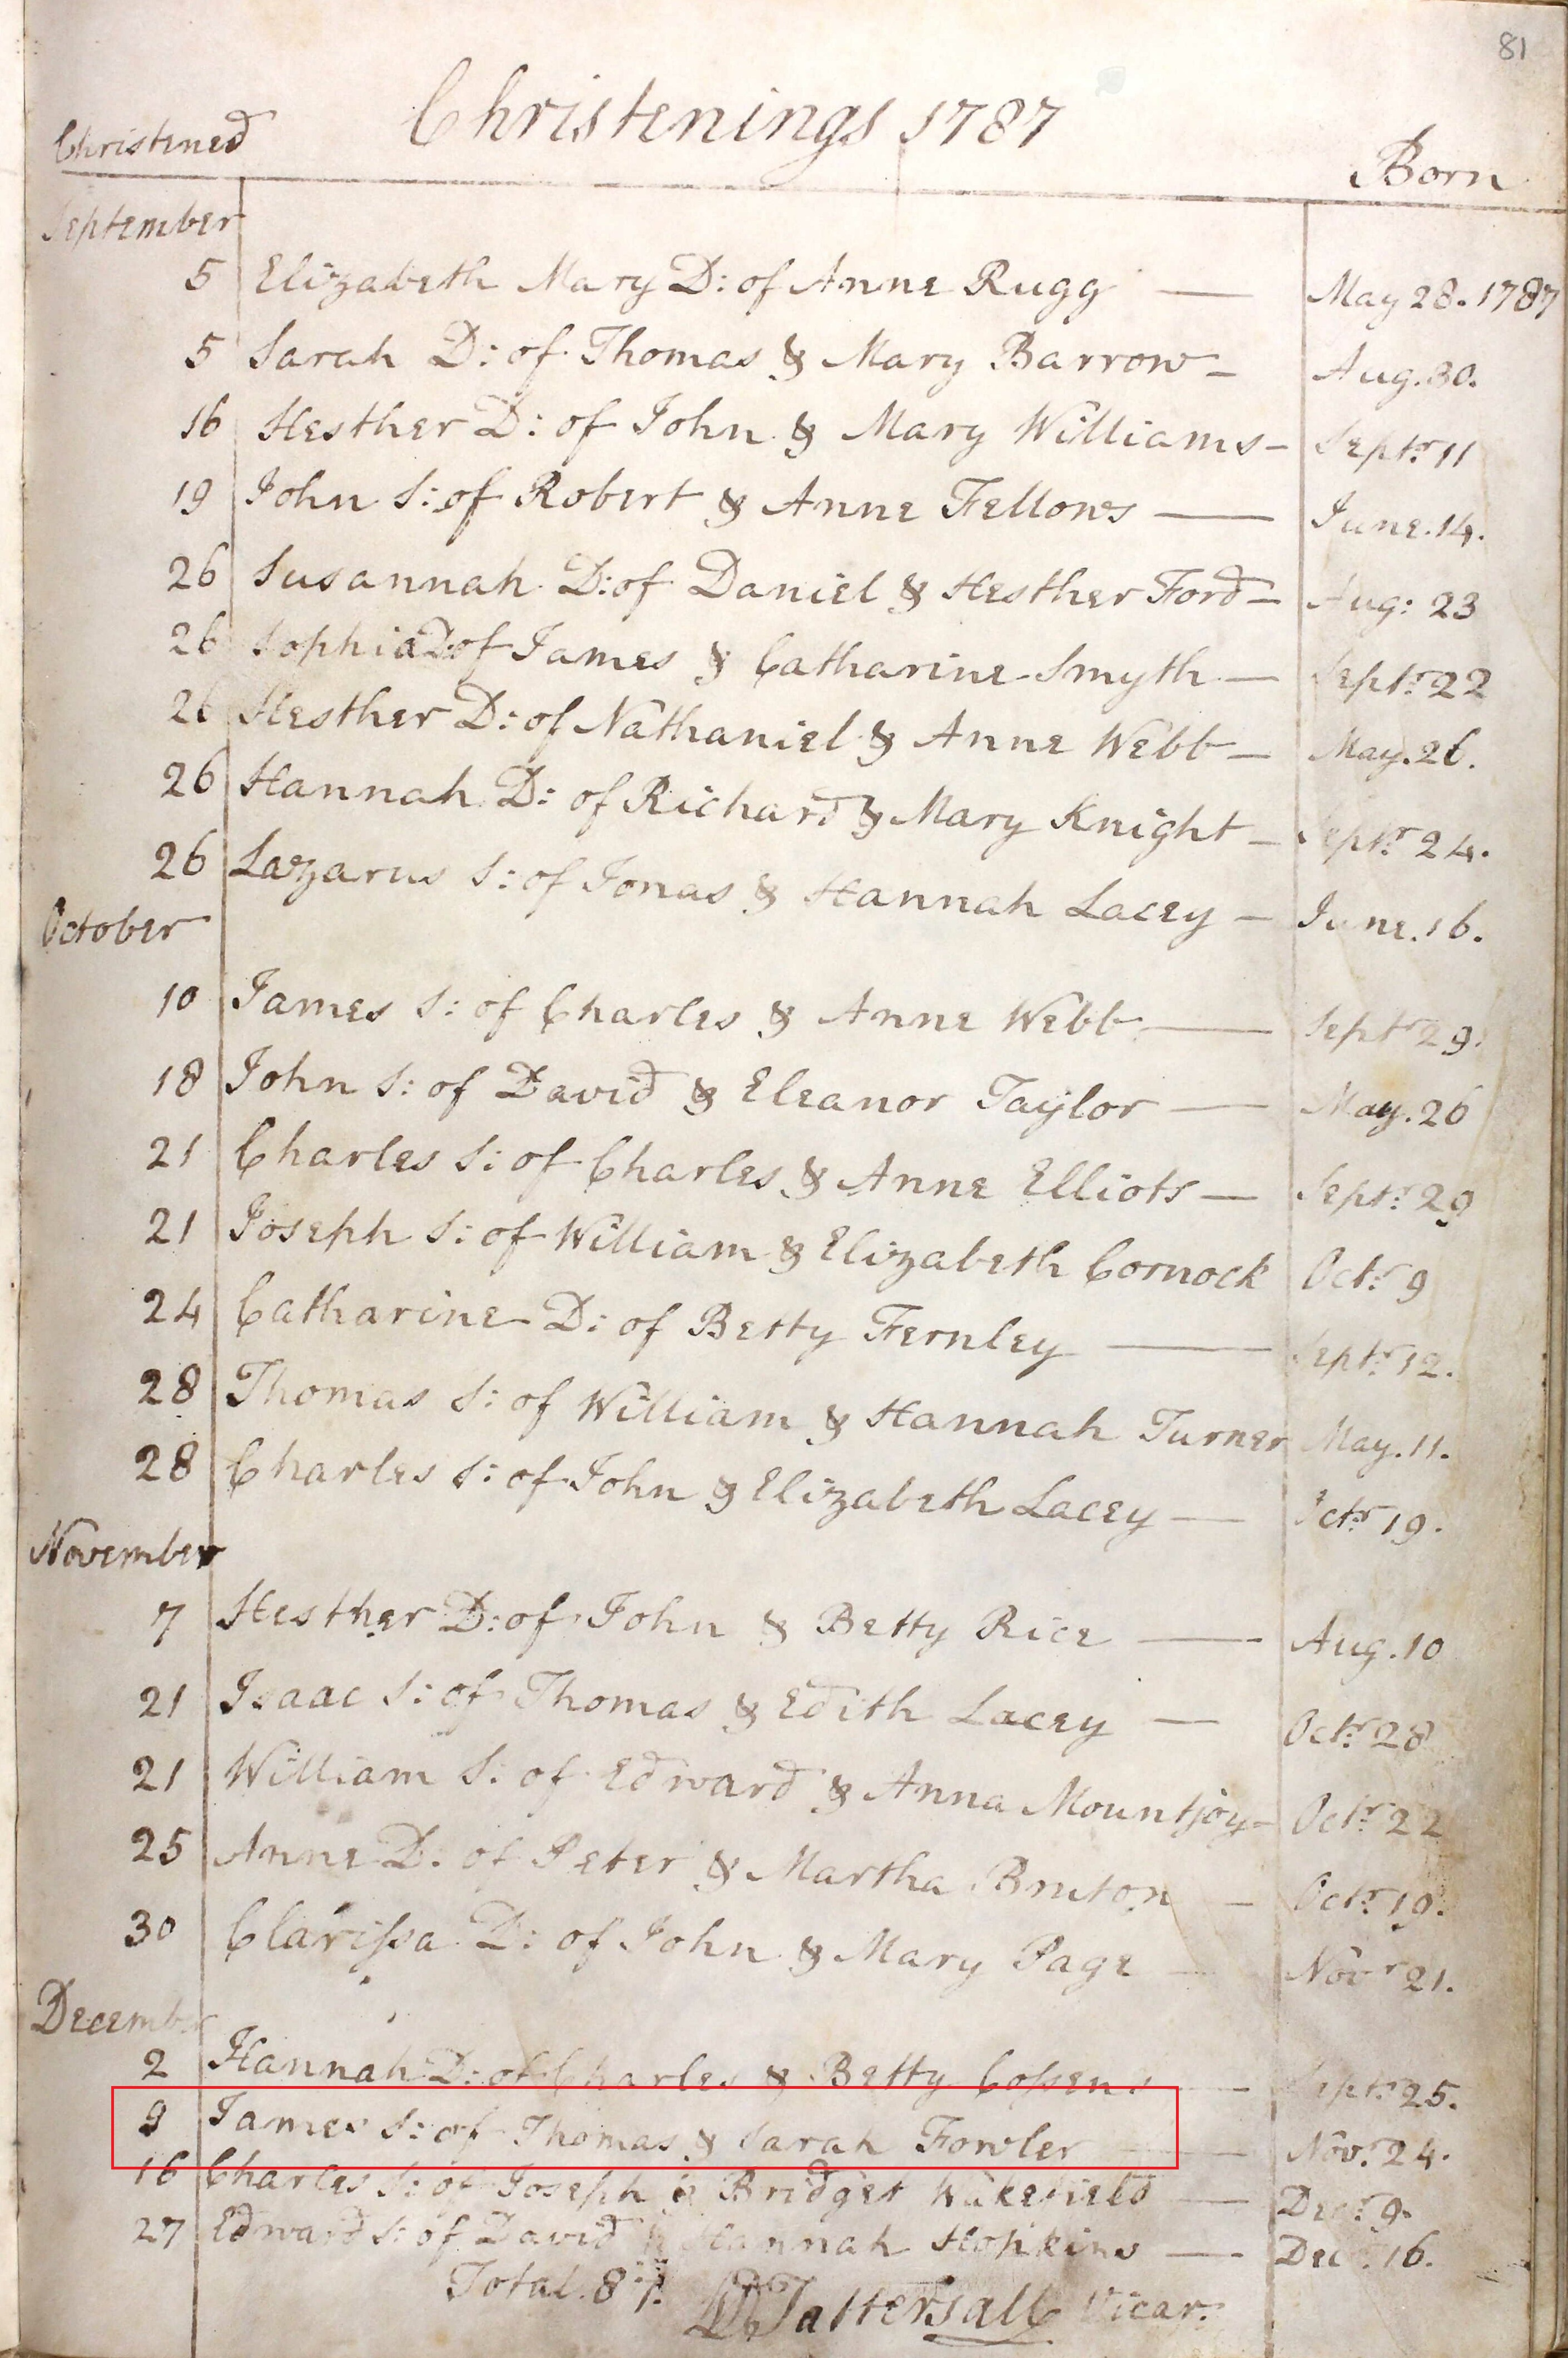 81
Christenings 1787
Christened
Born
September
5 Elizabeth Mary D: of Anne Rugg — May 28. 1787
5 Sarah D: of Thomas & Mary Barrow – Aug. 30.
16 Hesther D: of John & Mary Williams – Septr. 11
19 John S: of Robert & Anne Fellows — June. 14.
26 Susannah D: of Daniel & Hesther Ford – Aug: 23
26 Sophia D: of James & Catharine Smyth — Septr. 22
26 Hesther D: of Nathaniel & Anne Webb – May. 26.
26 Hannah D: of Richard & Mary Knight – Septr. 24.
26 Lazarus S: of Jonas & Hannah Lacey – June. 16.
October
10 James S: of Charles & Anne Webb — Septr. 29.
18 John S: of David & Eleanor Taylor — May. 26
21 Charles S: of Charles & Anne Elliots — Septr. 29
21 Joseph S: of William & Elizabeth Cornock Octr. 9
24 Catharine D: of Betty Fernley — Septr. 12.
28 Thomas S: of William & Hannah Turner May. 11.
28 Charles S: of John & Elizabeth Lacey — Octr. 19.
November
7 Hesther D: of John & Betty Rice — Aug. 10
21 Isaac S: of Thomas & Edith Lacey — Octr. 28
21 William S: of Edward & Anna Mountjoy – Octr. 22
25 Anne D. of Peter & Martha Bruton – Octr. 19.
30 Clarissa D: of John & Mary Page — Novr 21.
December
2 Hannah D: of Charles & Betty Cossens — Septr. 25.
9 James S: of Thomas & Sarah Fowler — Novr. 24.
16 Charles S: of Joseph & Bridget Wakefield — Decr. 9.
27 Edward S: of David & Hannah Hopkins — Decr. 16.
Total. 87. Tattersall Vicar.